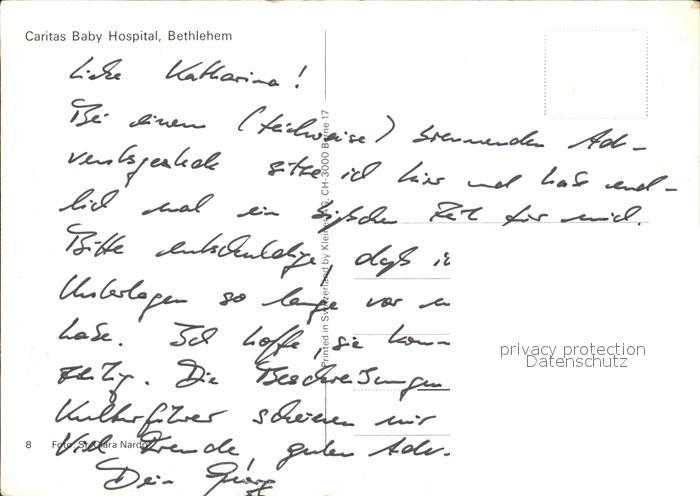 Caritas Baby Hospital, Bethlehem
Liebe Katharina!
Bei einem (teilweise) brennenden Ad-
ventsgesteck sitze ich hier und habe end-
lich mal ein bißchen Zeit für mich.
Bitte entschuldige, daß ic
Unterlagen so lange vor
habe. Ich hoffe, sie kom
zeitig. Die Beschreibungen
Kulturführer scheinen mir
Viel Freude, guten Adv.
Dein Georg
8 Foto: Sr. Clara Nardo
Printed in Switzerland by Kleiner AG, CH-3000 Berne 17
privacy protection
Datenschutz